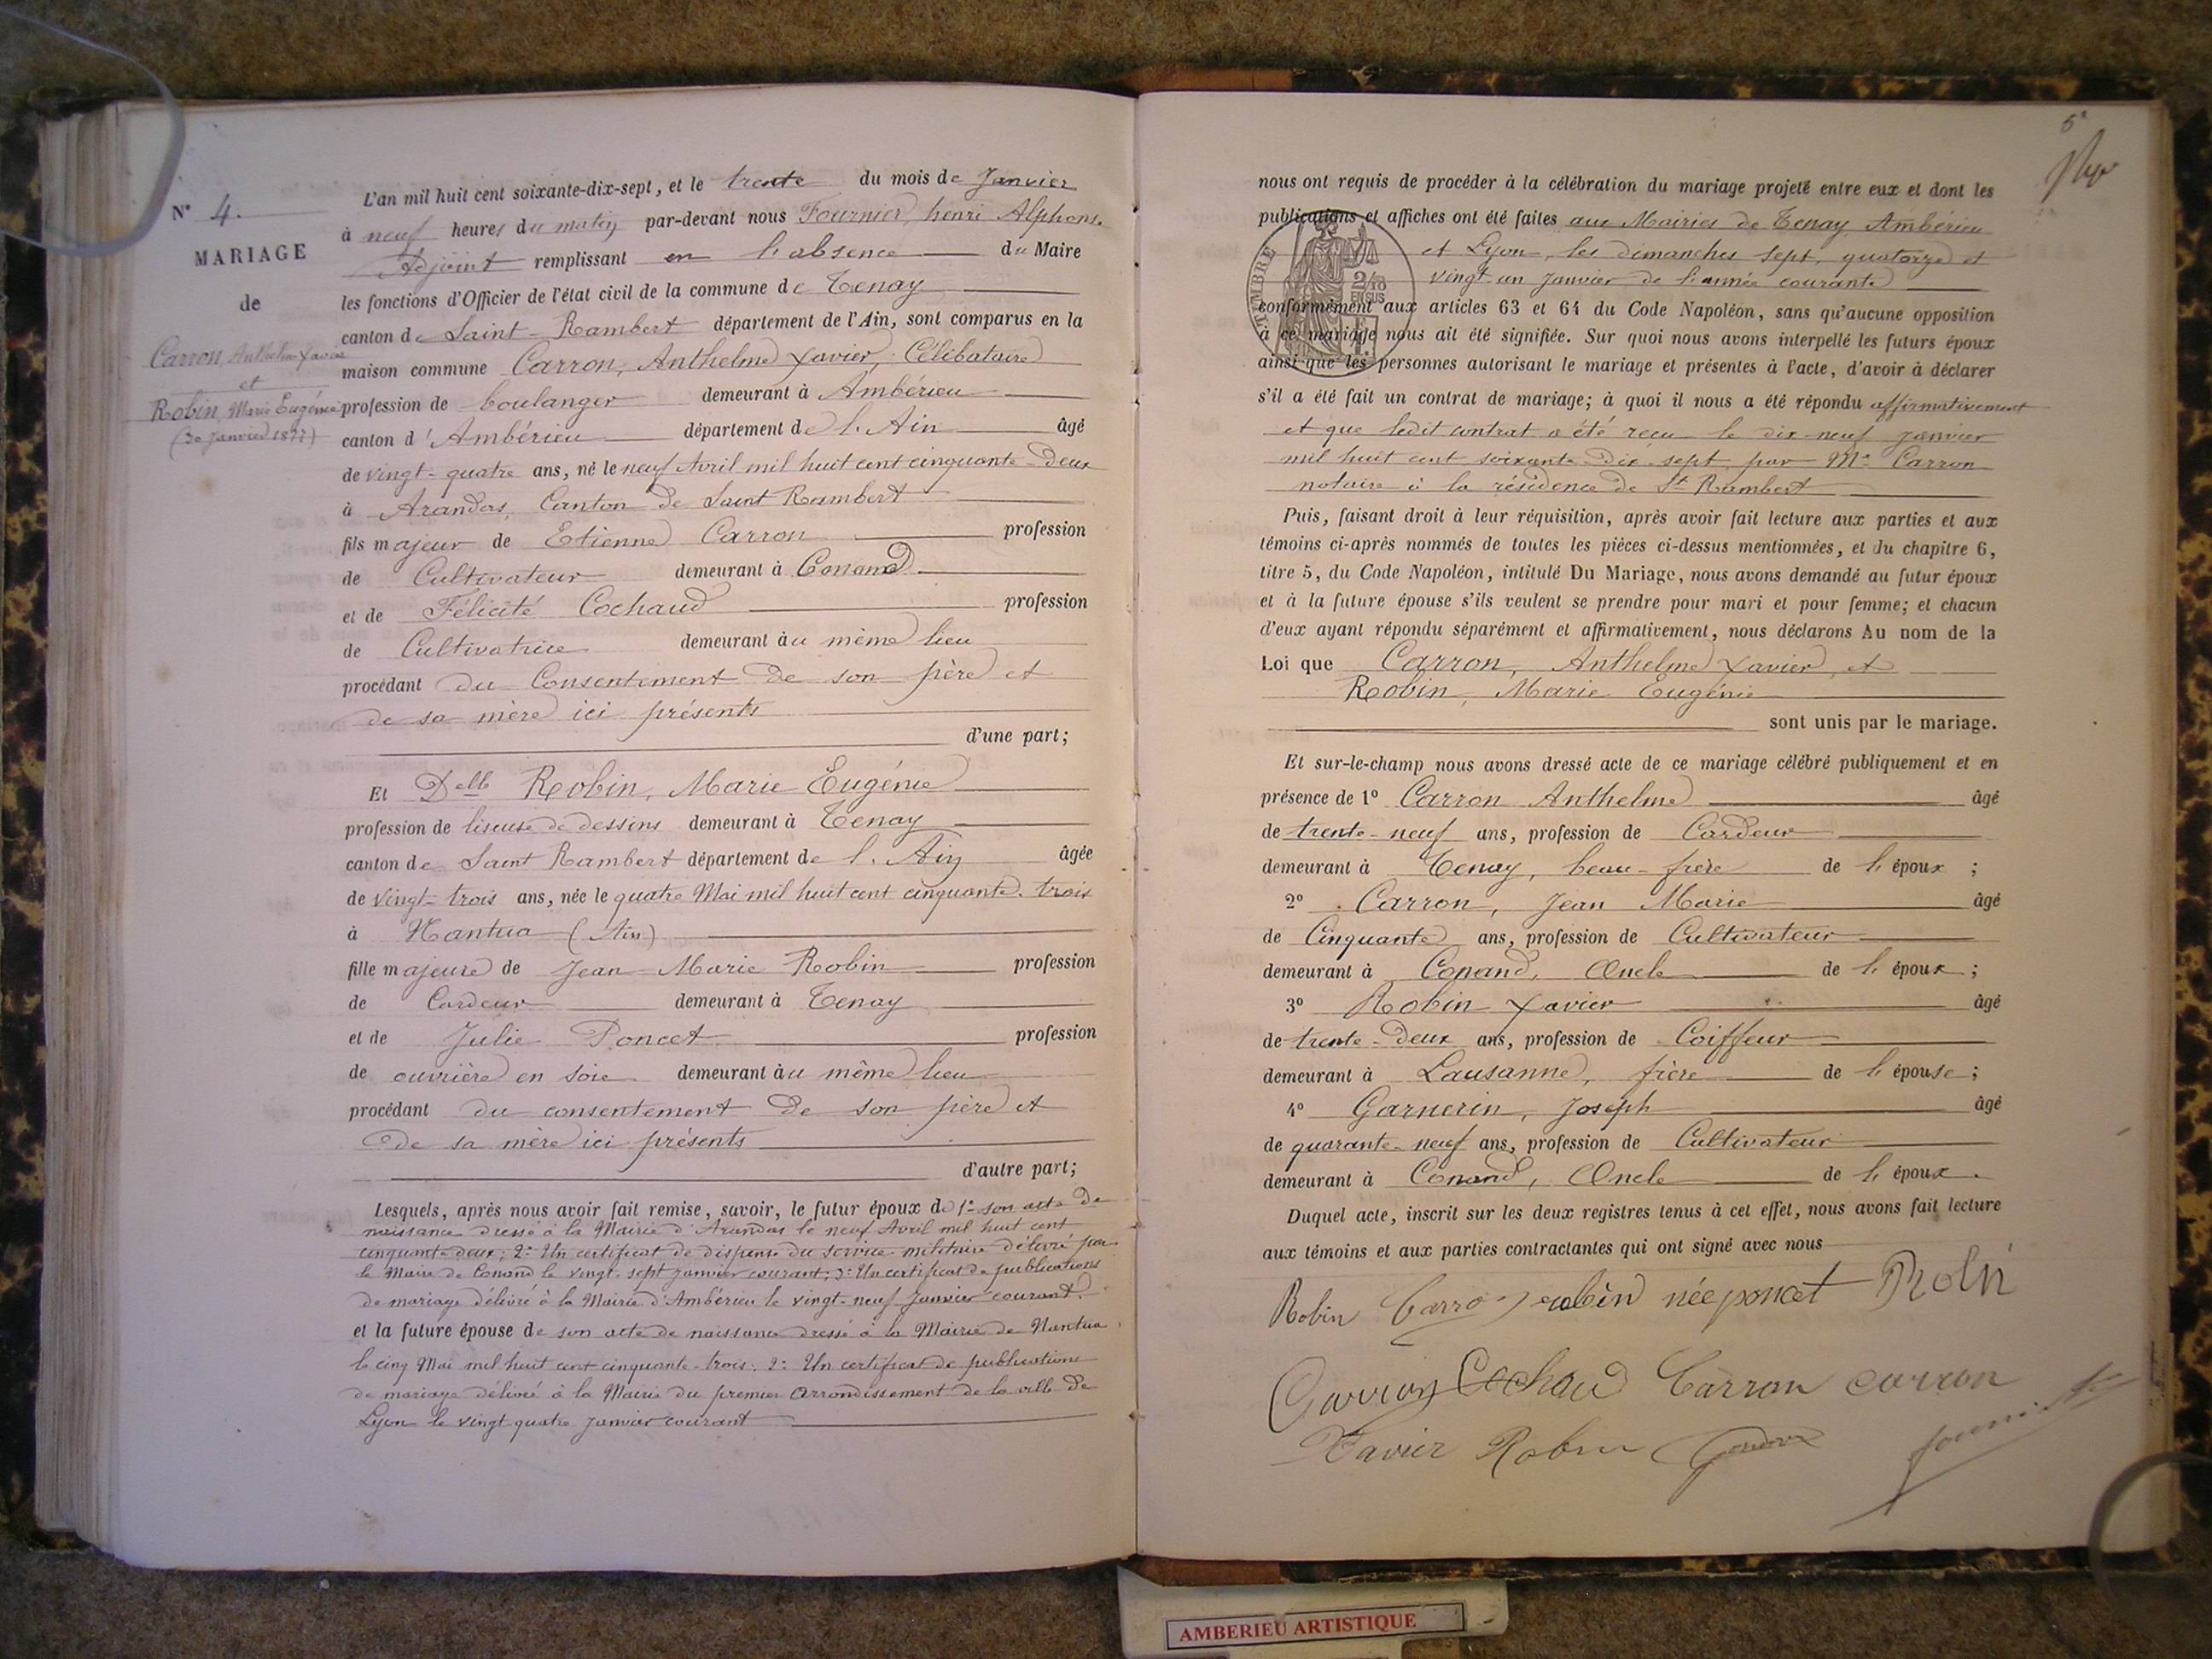 N° 4.
MARIAGE
de
Carron, Anthelme Xavier
et
Robin, Marie Eugénie
(30 Janvier 1877)
L'an mil huit cent soixante-dix-sept, et le trente du mois de Janvier
à neuf heures du matin par-devant nous Fournier, henri Alphonse
Adjoint remplissant en l'absence du Maire
les fonctions d'Officier de l'état civil de la commune de Tenay
canton de Saint-Rambert département de l'Ain, sont comparus en la
maison commune Carron, Anthelme Xavier, Célibataire
profession de boulanger demeurant à Ambérieu
canton d'Ambérieu département de l'Ain âgé
de vingt-quatre ans, né le neuf Avril mil huit cent cinquante-deux
à Arandas, Canton de Saint Rambert
fils majeur de Etienne Carron profession
de Cultivateur demeurant à Conand
et de Félicité Cochaud profession
de Cultivatrice demeurant au même lieu
procédant du Consentement de son père et
de sa mère ici présents
d'une part;
Et Delle Robin, Marie Eugénie
profession de liseuse de dessins demeurant à Tenay
canton de Saint Rambert département de l'Ain âgée
de vingt-trois ans, née le quatre Mai mil huit cent cinquante-trois
à Nantua (Ain)
fille majeure de Jean-Marie Robin profession
de Cardeur demeurant à Tenay
et de Julie Poncet profession
de ouvrière en soie demeurant au même lieu
procédant du consentement de son père et
de sa mère ici présents
d'autre part;
Lesquels, après nous avoir fait remise, savoir, le futur époux de 1° son acte de
naissance dressé à la Mairie d'Arandas le neuf Avril mil huit cent
cinquante-deux; 2° Un certificat de dispense du service militaire délivré par
le Maire de Conand le vingt-sept janvier courant; 3° Un certificat de publications
de mariage délivré à la Mairie d'Ambérieu le vingt-neuf Janvier courant.
et la future épouse de son acte de naissance dressé à la Mairie de Nantua
le cinq Mai mil huit cent cinquante-trois; 2° Un certificat de publications
de mariage délivré à la Mairie du premier Arrondissement de la ville de
Lyon le vingt quatre janvier courant
5e
nous ont requis de procéder à la célébration du mariage projeté entre eux et dont les
publications et affiches ont été faites aux Mairies de Tenay, Ambérieu
et Lyon, les dimanches sept, quatorze et
vingt-un Janvier de l'année courante
TIMBRE
2/10
EN SUS
conformément aux articles 63 et 64 du Code Napoléon, sans qu'aucune opposition
à ce mariage nous ait été signifiée. Sur quoi nous avons interpellé les futurs époux
ainsi que les personnes autorisant le mariage et présentes à l'acte, d'avoir à déclarer
s'il a été fait un contrat de mariage; à quoi il nous a été répondu affirmativement
et que ledit contrat a été reçu le dix-neuf janvier
mil huit cent soixante-dix-sept par Me Carron
notaire à la résidence de St Rambert
Puis, faisant droit à leur réquisition, après avoir fait lecture aux parties et aux
témoins ci-après nommés de toutes les pièces ci-dessus mentionnées, et du chapitre 6,
titre 5, du Code Napoléon, intitulé Du Mariage, nous avons demandé au futur époux
et à la future épouse s'ils veulent se prendre pour mari et pour femme; et chacun
d'eux ayant répondu séparément et affirmativement, nous déclarons Au nom de la
Loi que Carron, Anthelme Xavier, et
Robin, Marie Eugénie
sont unis par le mariage.
Et sur-le-champ nous avons dressé acte de ce mariage célébré publiquement et en
présence de 1° Carron Anthelme âgé
de trente-neuf ans, profession de Cardeur
demeurant à Tenay, beau-frère de l'époux;
2° Carron, Jean Marie âgé
de Cinquante ans, profession de Cultivateur
demeurant à Conand, Oncle de l'époux;
3° Robin Xavier âgé
de trente-deux ans, profession de Coiffeur
demeurant à Lausanne, frère de l'épouse;
4° Garnerin, Joseph âgé
de quarante-neuf ans, profession de Cultivateur
demeurant à Conand, Oncle de l'époux.
Duquel acte, inscrit sur les deux registres tenus à cet effet, nous avons fait lecture
aux témoins et aux parties contractantes qui ont signé avec nous
Robin Carron robin née poncet Robin
Carron Cochaud Carron carron
Xavier Robin
AMBERIEU ARTISTIQUE